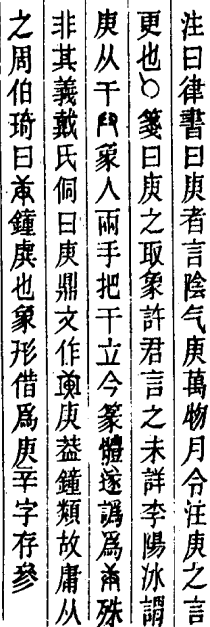 注曰律書曰庚者言陰气庚萬物月令注庚之言
更也○箋曰庚之取象許君言之未詳李陽冰謂
庚从干𦥑象人兩手把干立今篆體遂譌爲𠷎殊
非其義戴氏侗曰庚鼎文作庚葢鐘類故庸从
之周伯琦曰鐘虡也象形借爲庚辛字存參